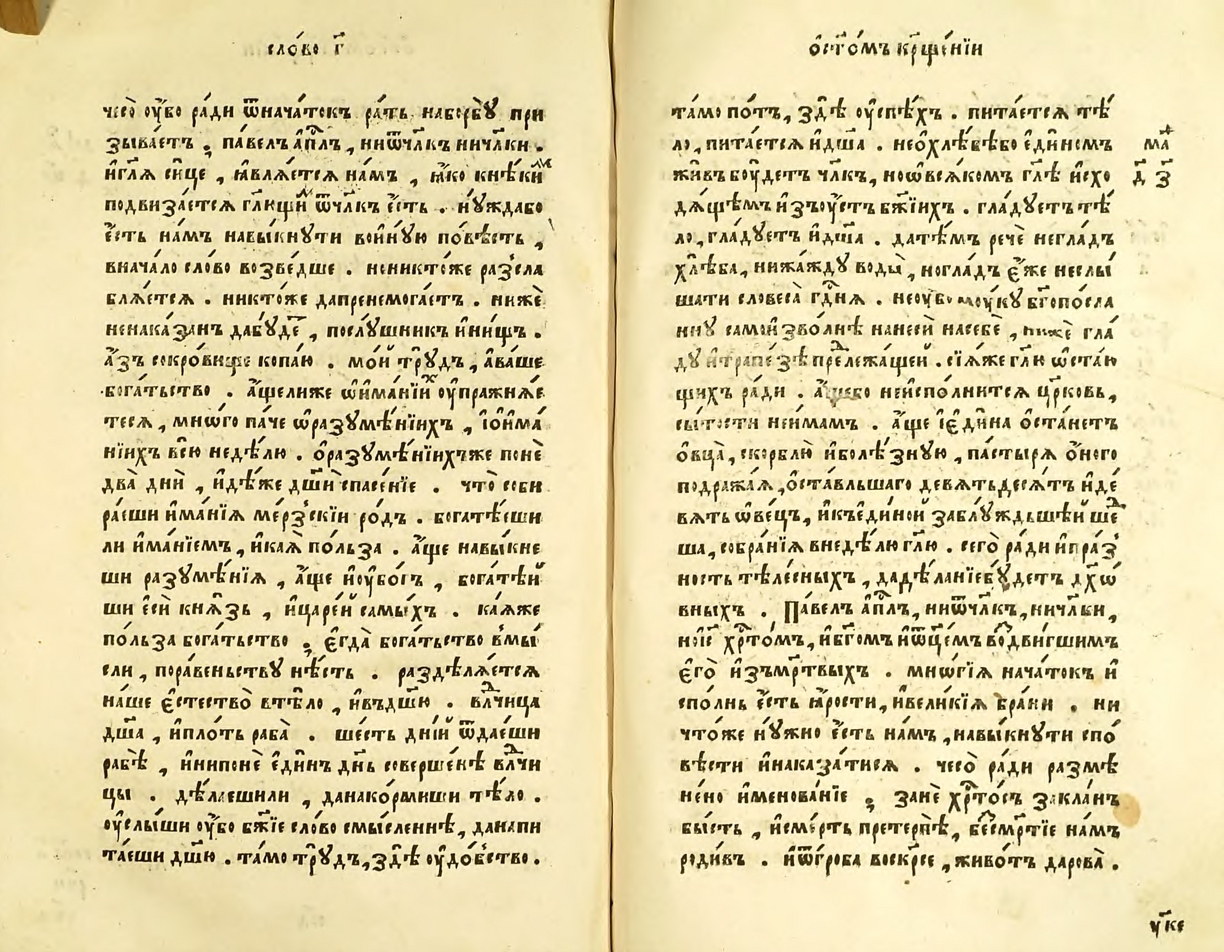 сло́во г҃
чесо̀ оу҆́бо ра́ди ѿнача́токъ ра́ть наборбꙋ̀ при
зыва́етъ ; па́велъ а҆п҃лъ , ниѿчл҃къ ничл҃къ .
и҆гл҃я си́це , ꙗ҆вля́ется на́мъ , ꙗ҆́ко кнѣ́кимъ
подвиза́ется гл҃ющимъ ѿчл҃къ є҆́сть . нꙋ́ждабо
є҆́сть на́мъ навы́кнути вои́нꙋю по́вѣсть ,
внача́ло сло́во возве́дше . нониктоже разсла
бля́ется . никто́же дапренемога́етъ . нижѐ
ненака́занъ дабꙋ́де , послꙋ́шникъ и҆́нищъ .
а҆́зъ сокро́вище копа́ю . мо́й трꙋ́дъ , а҆ва́ше
бога́тьство . а҆́щелиже ѡ҆има́нїихъ оу҆пражня́е
теся , мно́го па́че ѡ҆разꙋмѣ́нїихъ , і҆ои҆ма́
нїихъ всю̀ недѣ́лю . ѡ҆разꙋмѣ́нїихъже понѐ
два̀ дни̑ , и҆дѣ́же дш҃и спасе́нїе . что̀ соби
ра́еши и҆мѣ́нїя ме́рзскїи ро́дъ . богатѣ́еши
ли и҆ма́нїемъ , и҆ка́я по́льза . а҆́ще навы́кне
ши разꙋмѣ́нїя , а҆́ще и҆оу҆бо́гъ , богатѣ́й
ши є҆сѝ кня́зь , и҆царе́й самы́хъ . ка́яже
по́льза бога́тьство ; є҆гда̀ бога́тьство вмы́
сли , пора́веньствꙋ нѣ́сть . раздѣля́ется
на́ше є҆стество̀ втѣ́ло , и҆въдш҃ю . влⷣчица
дш҃а , и҆пло́ть раба̀ . ше́сть дні́й ѿдае́ши
рабѣ̀ , и҆нипонѐ є҆ди́нъ дн҃ь соверше́нѣ влⷣчи
цы . дѣ́лаешили , данако́рмиши тѣ́ло .
оу҆слы́ши оу҆́бо бж҃їе сло́во смы́сленнѣ , данапи
та́еши дш҃ю . та́мо трꙋ́дъ , здѣ̀ оу҆до́бьство .
о҆ст҃о́мъ крⷭ҇ще́нїи
та́мо по́тъ , здѣ̀ оу҆спѣ́хъ . пита́ется тѣ́
ло , пита́ется и҆дш҃а . неѡ҆хлѣ́бѣбо є҆ди́немъ
жи́въ бꙋ́детъ чл҃къ , ноѡ҆вся́комъ гл҃ѣ и҆схо
дя́щемъ и҆зъоу҆́стъ бж҃їихъ . гла́дꙋетъ тѣ́
ло , гла́дꙋетъ и҆дш҃а . да́тѣмъ речѐ негла́дъ
хлѣ́ба , нижа́ждꙋ воды̀ , ногла́дъ є҆́же неслы́
шати словеса̀ гдⷭ҇ня . неоу҆бо мо́укꙋ бг҃опосла
ннꙋ самои҆зво́лнѣ нанесе́й насебѐ , нижѐ гла́
дꙋ и҆трапе́зѣ предлежа́щей . сїя́же гл҃ю ѡ҆ста́ю
щихъ ра́ди . а҆́щебо неи҆спо́лнится цр҃ковь ,
сы́тости неи́мамъ . а҆́ще і҆є҆ди́на ѡ҆ста́нетъ
ѻ҆вца̀ , скорблю̀ и҆болѣ́знꙋю , па́стыря ѻ҆́ного
подража́я , ѡ҆ста́вльшаго де́вятьдеся́тъ и҆де́
вять ѡ҆ве́цъ , и҆къе҆ди́ной заблꙋ́ждьшей шед
ша , собра́нїя внедѣ́лю гл҃ю . сего̀ ра́ди и҆пра́з
ность тѣле́сныхъ , дадѣ́ланїебꙋ́детъ дх҃ѡ
вныхъ . Па́велъ а҆п҃лъ , ниѿчл҃къ , ничл҃ки ,
ноі҆с҃ хрⷭ҇то́мъ , и҆бг҃омъ и҆ѿц҃емъ воздви́гшимъ
є҆го̀ и҆зъме́ртвыхъ . мно́гїя нача́токъ и҆
спо́лнь є҆́сть ꙗ҆́рости , и҆вели́кїя бра́ни . ни
что́же нꙋ́жно є҆́сть на́мъ , навы́кнꙋти спо́
вѣсти и҆наказа́тися . чесо̀ ра́ди размѣ
нено̀ и҆менова́нїе ; занѐ хрⷭ҇то́съ закла́нъ
бы́сть , и҆сме́рть претерпѣ̀ , бесме́ртїе на́мъ
роди́въ . и҆ѿгро́ба воскрⷭ҇е , живо́тъ дарова̀ .
мⷶ
д҃ з҃